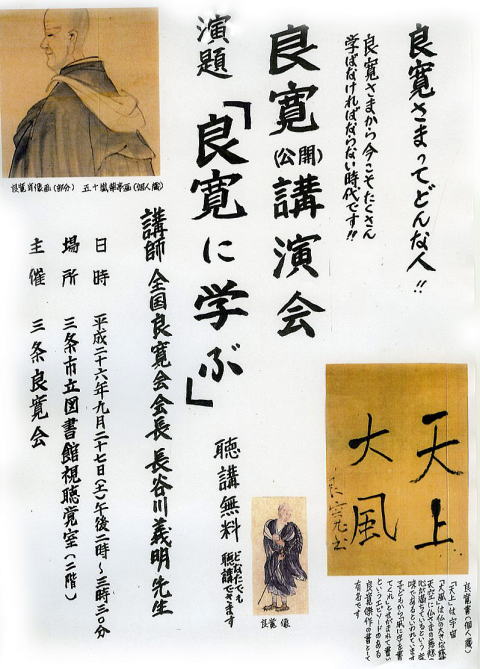 良寛さまってどんな人!!
良寛さまから今こそたくさん
学ばなければならない時代です!!
良寛(公開)講演会
演題「良寛に学ぶ」
講師 全国良寛会会長 長谷川義明先生
日時 平成二十六年九月二十七日(土)午後二時~三時三〇分
場所 三条市立図書館視聴覚室(二階)
主催 三条良寛会
聴講無料
どなたでも
聴講できます
良寛肖像画(部分) 五十嵐華亭画(個人蔵)
良寛像
天上
大風
良寛書(個人蔵)
「天上」は宇宙
「大風」は仏の大きな慈悲
天空に仏さまの慈悲
心が満ちているという意
味であるといわれています
子どもから「凧に字を書い
てくれ」とせがまれて書い
というエピソードのある
良寛傑作の書として
有名です